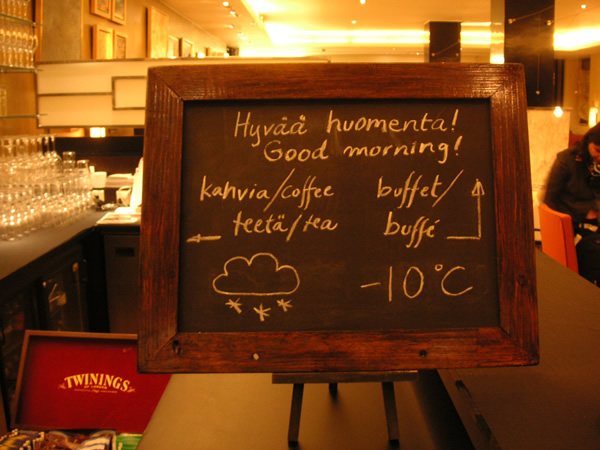 Hyvää huomenta!
Good morning!
kahvia/coffee
teetä/tea
buffet/
buffé
-10°C
TWININGS
OF LONDON